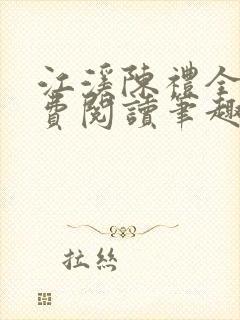 江溪陳禮全
費閱讀筆趣
拉丝